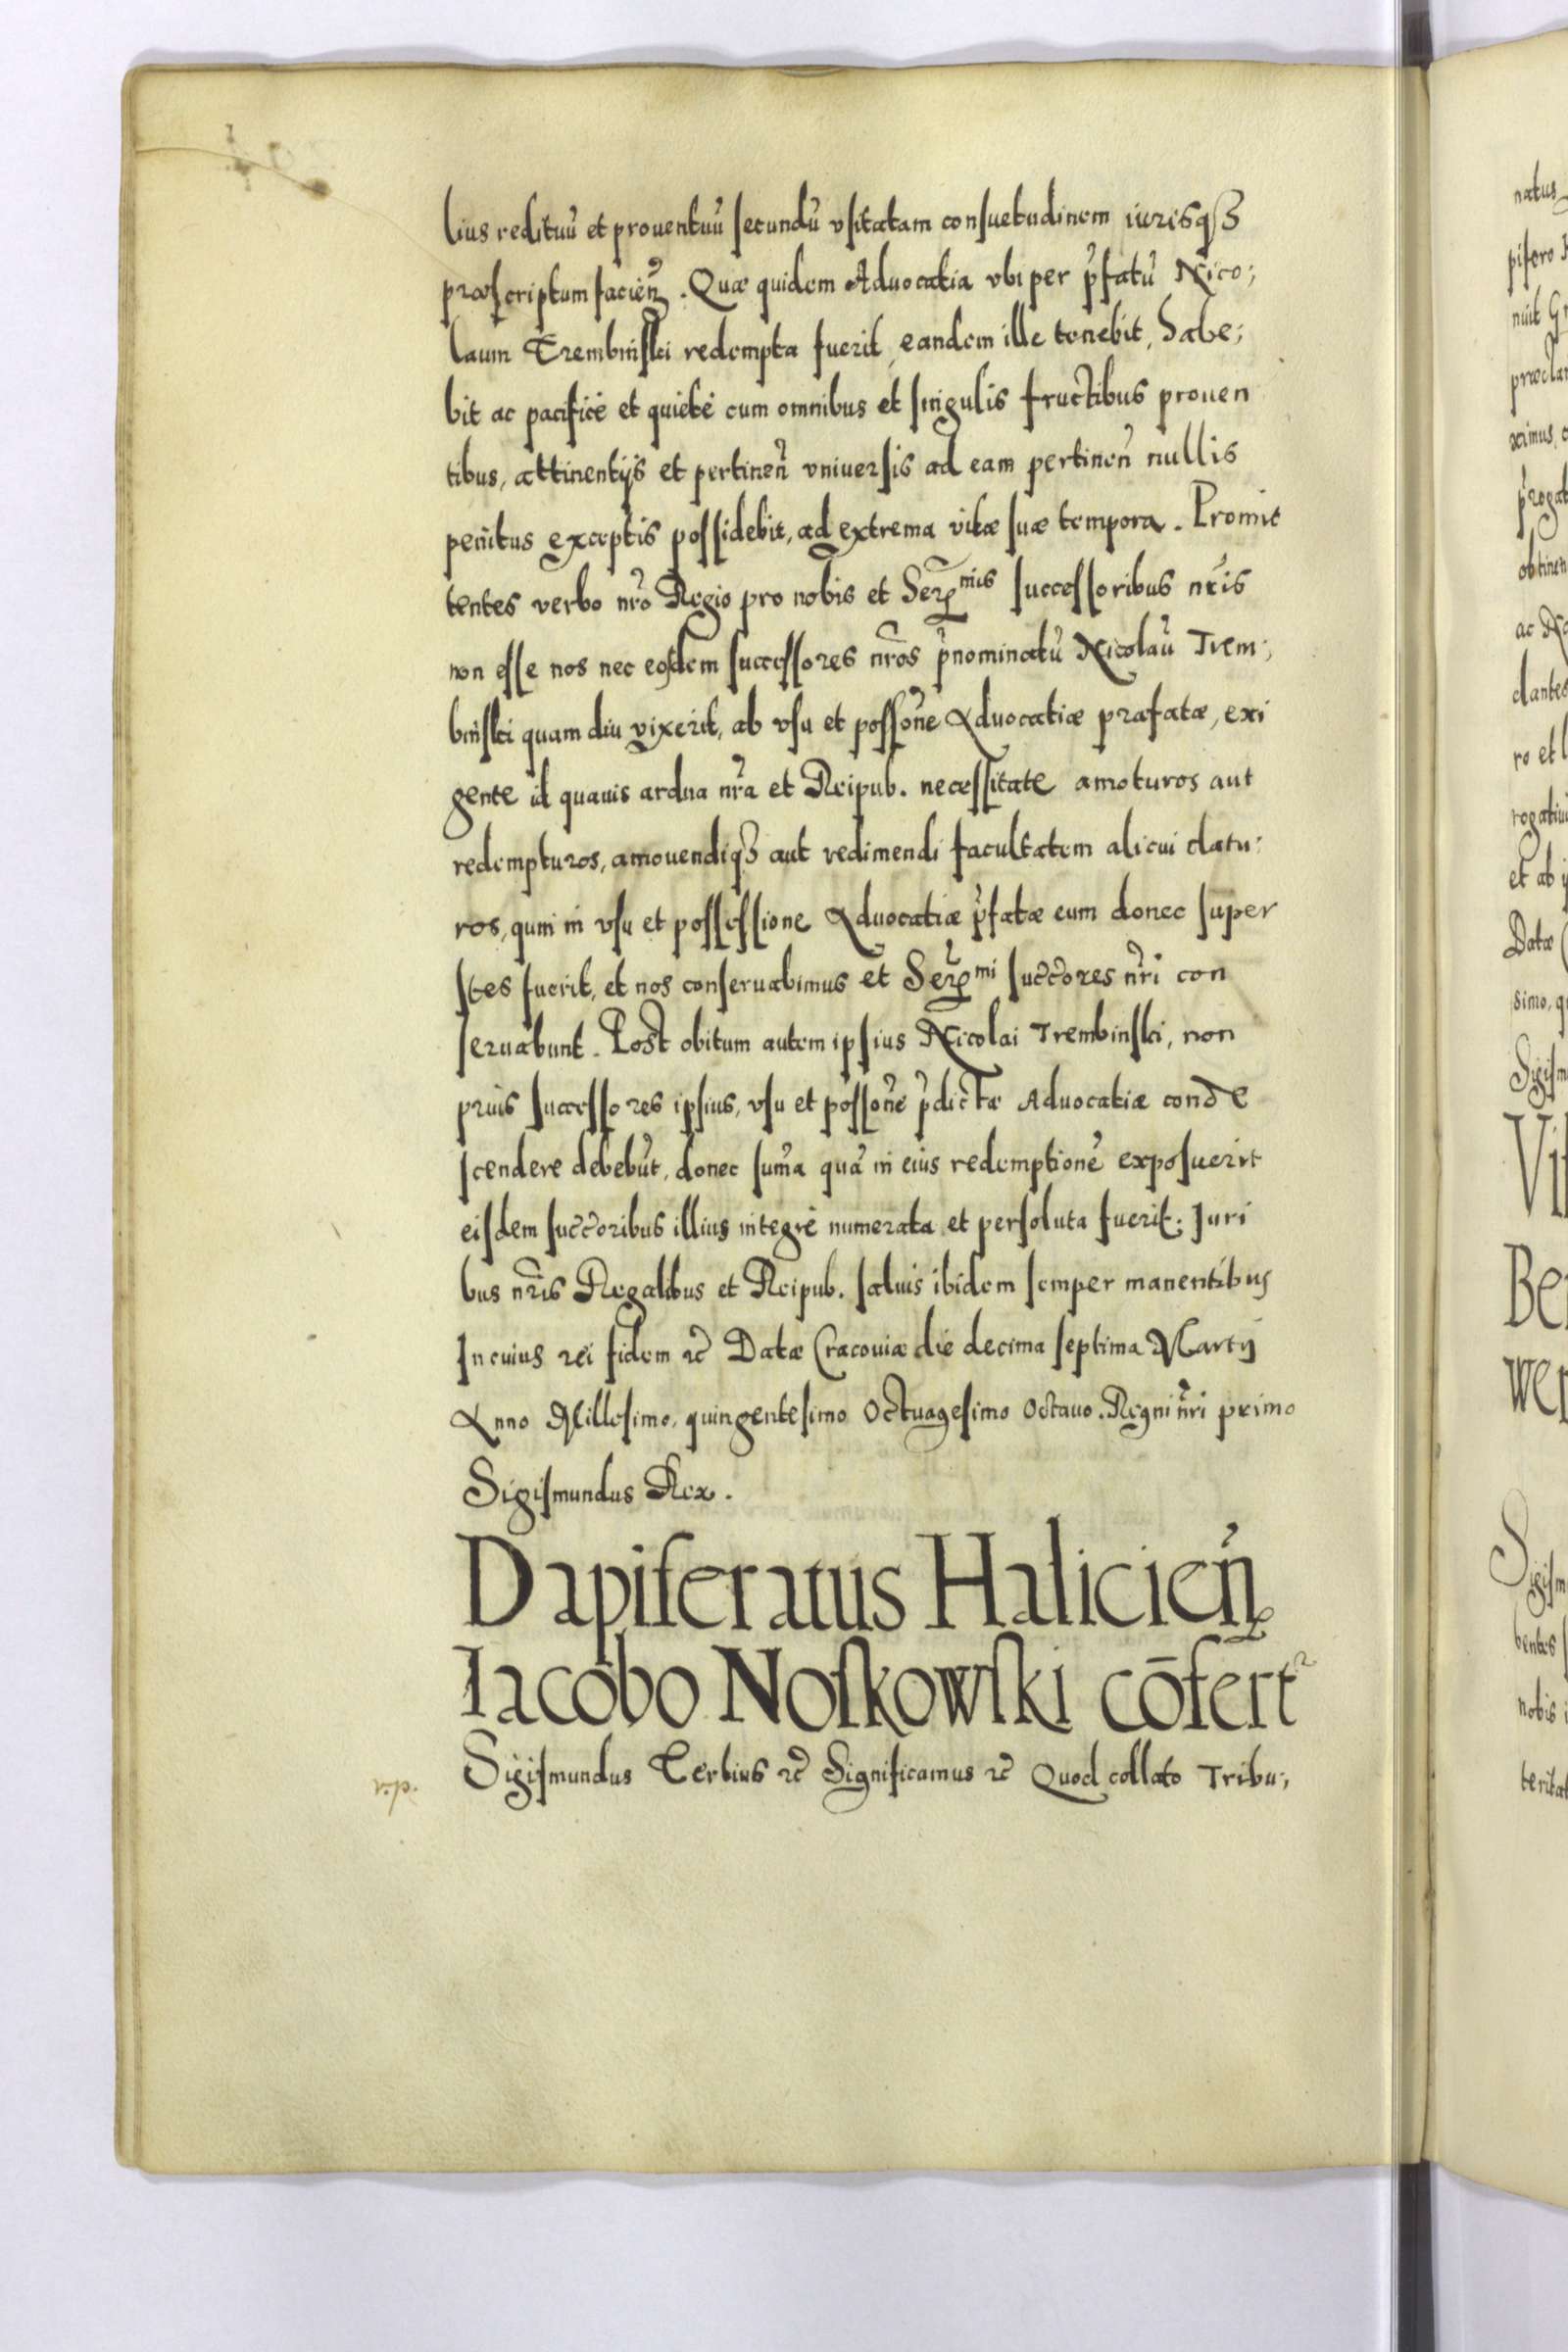 lius redituũ et prouentuũ secundũ vsitatam consuetudinem iurisqꝫ
præscriptum facieñ. Quæ quidem Aduocatia vbi per p̃fatũ Nico;
laum Trembiński redempta fuerit, eandem ille tenebit, habe;
bit ac pacificè et quietè cum omnibus et singulis fructibus prouen
tibus, attinentijs et pertineñ vniuersis ad eam pertineñ nullis
penitus exceptis possidebit, ad extrema vitæ suæ tempora. Promit
tentes verbo nr̃o Regio pro nobis et Seren̄ᵐⁱˢ successoribus nr̃is
non esse nos nec eosdem successores nr̃os p̃nominatũ Nicolaũ Trem;
biński quam diu vixerit, ab vsu et possoñe Aduocatiæ præfatæ, exi
gente id quauis ardua nr̃a et Reipub. necessitate amoturos aut
redempturos, amouendiqꝫ aut redimendi facultatem alicui datu;
ros, quin in vsu et possessione Aduocatiæ p̃fatæ eum donec super
stes fuerit, et nos conseruabimus et Seren̄ᵐⁱ succ̃ores nr̃i con
seruabunt. Post obitum autem ipsius Nicolai Trembinski, non
priùs successores ipsius, vsu et possoñe p̃dictæ Aduocatiæ conde
scendere debebũt, donec sum̃a quã in eius redemptionẽ exposuerit
eisdem succ̃oribus illius integrè numerata et persoluta fuerit. Juri
bus nr̃is Regalibus et Reipub. saluis ibidem semper manentibus
In cuius rei fidem ꝛc̃ Datæ Cracouiæ die decima septima Martij
Anno Millesimo, quingentesimo Octuagesimo Octauo. Regni nr̃i primo
Sigismundus Rex.
Dapiferatus Halicień
Iacobo Noskowski cōfert²
v.p. Sigismundus Tertius ꝛc̃ Significamus ꝛc̃ Quod collato Tribu;
natus
pifero
nuit
præclar
ximus
p̃rogat
obtinen
ac
dantes
ro et
rogatiui
et ab
Datæ
simo, q
Sigism
Vi
Be
wer
Sigism
bentes
nobis
teritat